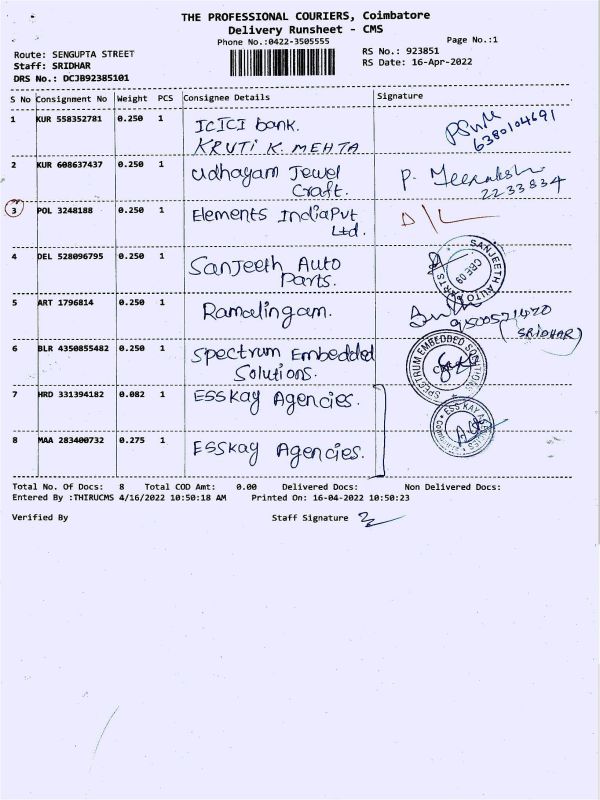 THE PROFESSIONAL COURIERS, Coimbatore
Delivery Runsheet - CMS
Phone No.:0422-3505555
Page No.:1
Route: SENGUPTA STREET
RS No.: 923851
Staff: SRIDHAR
RS Date: 16-Apr-2022
DRS No.: DCJB92385101
S No Consignment No Weight PCS Consignee Details Signature
1 KUR 558352781 0.250 1 ICICI bank.
KRUTI K. MEHTA
6380104691
2 KUR 608637437 0.250 1 Udhayam Jewel
Craft.
P. Meenakshi
2233834
3 POL 3248188 0.250 1 Elements India Pvt
Ltd.
D/L
4 DEL 528096795 0.250 1 Sanjeeth Auto
Parts.
SANJEETH AUTO PARTS
CBE 09
5 ART 1796814 0.250 1 Ramalingam.
(SRIDHAR)
6 BLR 4350855482 0.250 1 Spectrum Embedded
Solutions.
SPECTRUM EMBEDDED SOLUTIONS
7 HRD 331394182 0.082 1 ESSKay Agencies.
ESS KAY AGENCIES
8 MAA 283400732 0.275 1 ESSkay Agencies.
Total No. Of Docs: 8 Total COD Amt: 0.00 Delivered Docs: Non Delivered Docs:
Entered By :THIRUCMS 4/16/2022 10:50:18 AM Printed On: 16-04-2022 10:50:23
Verified By Staff Signature